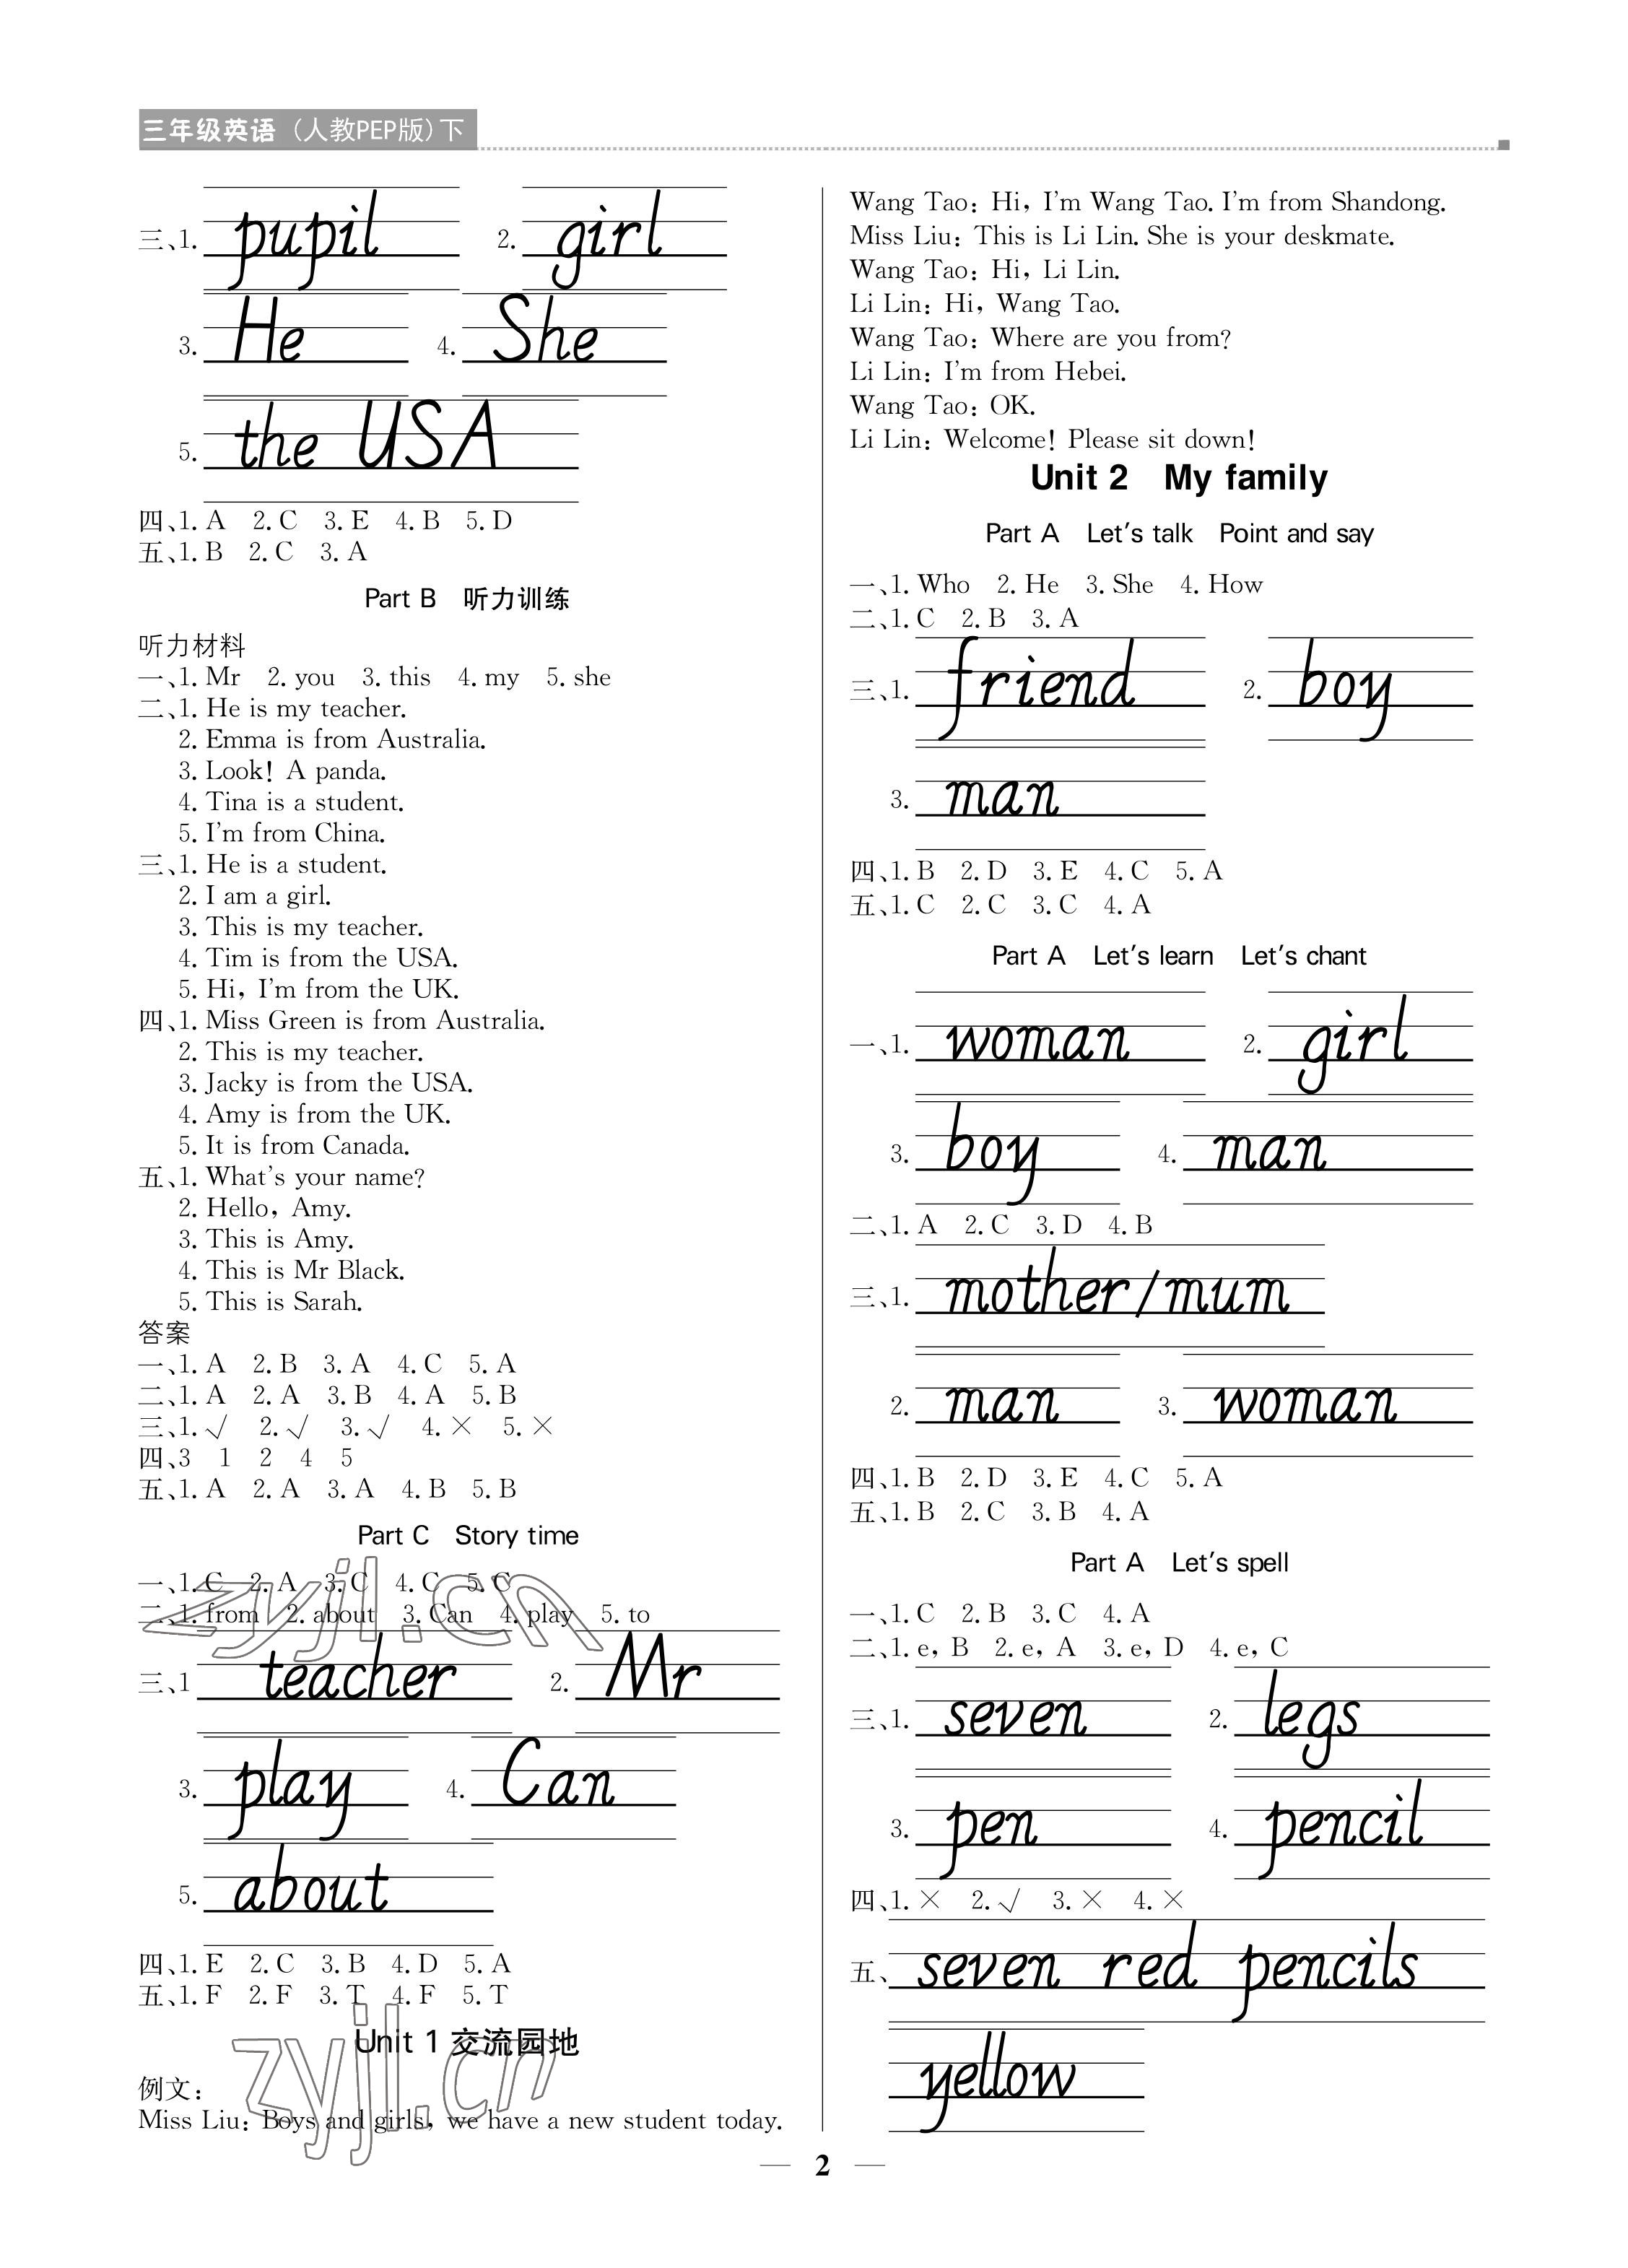 三年级英语（人教PEP版）下
三、1. pupil 2. girl
3. He 4. She
5. the USA
四、1. A 2. C 3. E 4. B 5. D
五、1. B 2. C 3. A
Part B 听力训练
听力材料
一、1. Mr 2. you 3. this 4. my 5. she
二、1. He is my teacher.
2. Emma is from Australia.
3. Look! A panda.
4. Tina is a student.
5. I'm from China.
三、1. He is a student.
2. I am a girl.
3. This is my teacher.
4. Tim is from the USA.
5. Hi, I'm from the UK.
四、1. Miss Green is from Australia.
2. This is my teacher.
3. Jacky is from the USA.
4. Amy is from the UK.
5. It is from Canada.
五、1. What's your name?
2. Hello, Amy.
3. This is Amy.
4. This is Mr Black.
5. This is Sarah.
答案
一、1. A 2. B 3. A 4. C 5. A
二、1. A 2. A 3. B 4. A 5. B
三、1. √ 2. √ 3. √ 4. × 5. ×
四、3 1 2 4 5
五、1. A 2. A 3. A 4. B 5. B
Part C Story time
一、1. C 2. A 3. C 4. C 5. C
二、1. from 2. about 3. Can 4. play 5. to
三、1 teacher 2. Mr
3. play 4. Can
5. about
四、1. E 2. C 3. B 4. D 5. A
五、1. F 2. F 3. T 4. F 5. T
Unit 1 交流园地
例文：
Miss Liu: Boys and girls, we have a new student today.
Wang Tao: Hi, I'm Wang Tao. I'm from Shandong.
Miss Liu: This is Li Lin. She is your deskmate.
Wang Tao: Hi, Li Lin.
Li Lin: Hi, Wang Tao.
Wang Tao: Where are you from?
Li Lin: I'm from Hebei.
Wang Tao: OK.
Li Lin: Welcome! Please sit down!
Unit 2 My family
Part A Let's talk Point and say
一、1. Who 2. He 3. She 4. How
二、1. C 2. B 3. A
三、1. friend 2. boy
3. man
四、1. B 2. D 3. E 4. C 5. A
五、1. C 2. C 3. C 4. A
Part A Let's learn Let's chant
一、1. woman 2. girl
3. boy 4. man
二、1. A 2. C 3. D 4. B
三、1. mother/mum
2. man 3. woman
四、1. B 2. D 3. E 4. C 5. A
五、1. B 2. C 3. B 4. A
Part A Let's spell
一、1. C 2. B 3. C 4. A
二、1. e, B 2. e, A 3. e, D 4. e, C
三、1. seven 2. legs
3. pen 4. pencil
四、1. × 2. √ 3. × 4. ×
五、seven red pencils
yellow
2
zyjl.cn
zyjl.cn